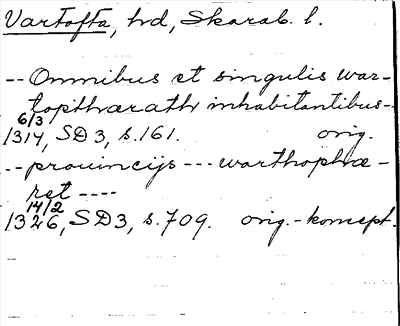 Vartofta, hd, Skarab. l.
-- Omnibus et singulis war-
topthærath inhabitantibus--
6/3
1314, SD3, s.161. orig.
-- prouincijs --- warthophæ-
ret ----
14/2
1326, SD3, s.709. orig.-koncept.